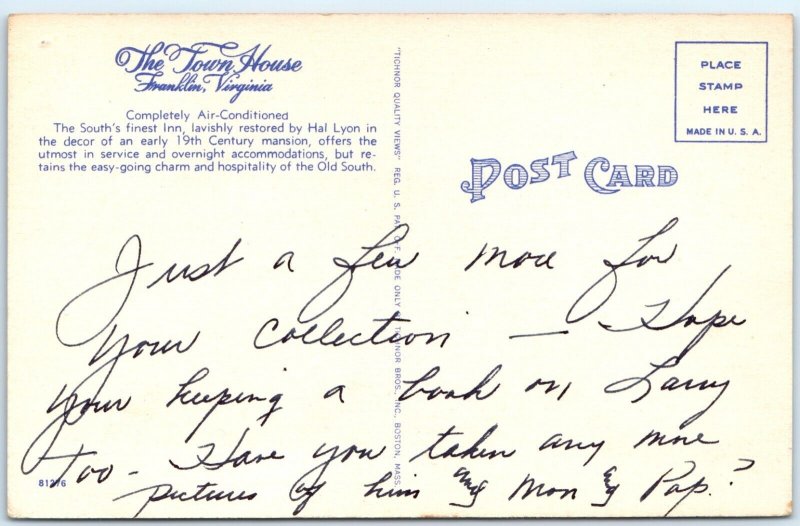 The Town House
Franklin, Virginia
Completely Air-Conditioned
The South's finest Inn, lavishly restored by Hal Lyon in
the decor of an early 19th Century mansion, offers the
utmost in service and overnight accommodations, but re-
tains the easy-going charm and hospitality of the Old South.
"TICHNOR QUALITY VIEWS" REG. U. S. PAT. OFF. MADE ONLY BY TICHNOR BROS., INC., BOSTON, MASS.
PLACE
STAMP
HERE
MADE IN U. S. A.
POST CARD
Just a few more for
your collection — Hope
your keeping a book on Larry
too - Have you taken any more
pictures of him and Mom and Pap.?
81276